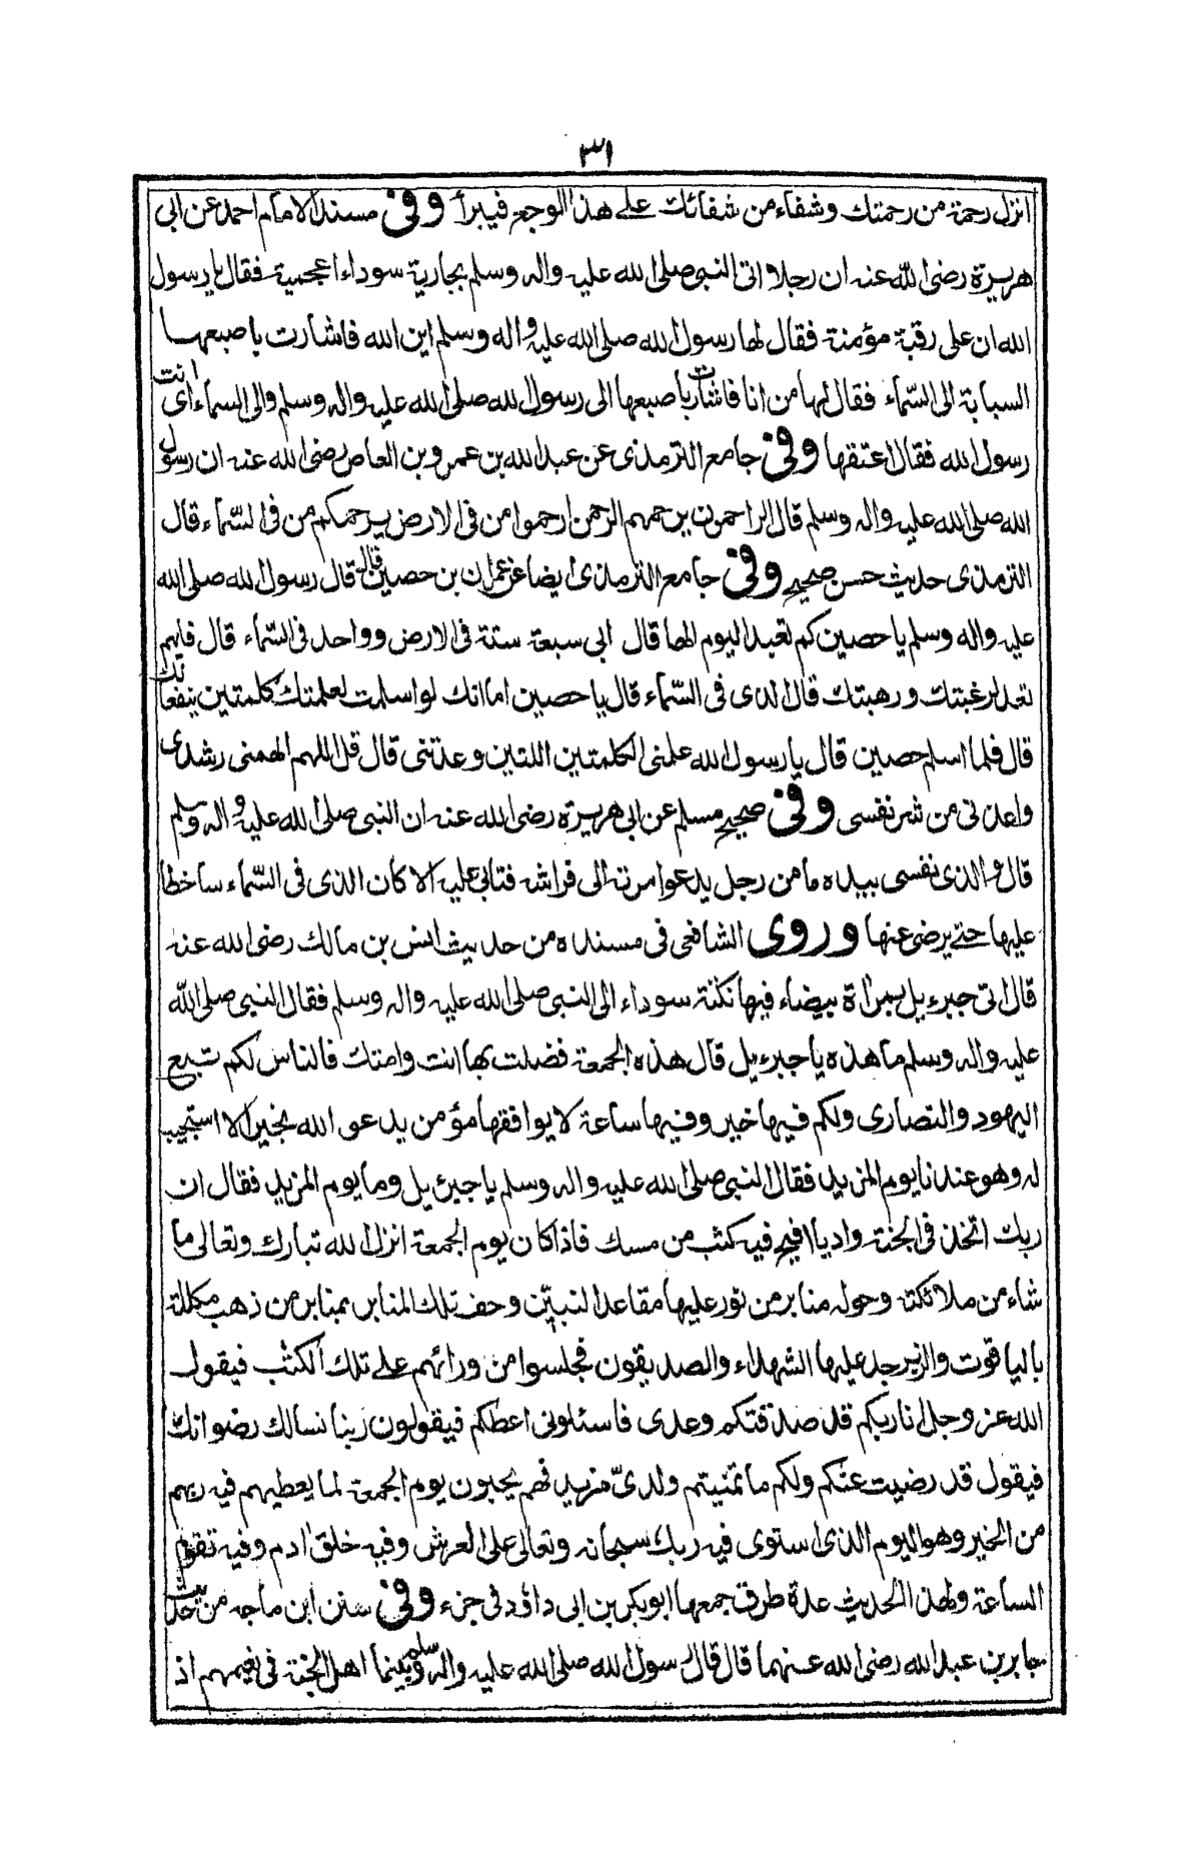 ٣١
انزل رحمة من رحمتك وشفاء من شفائك على هذا الوجع فيبرأ وفى مسند الامام احمد عن ابى
هريرة رضى الله عنه ان رجلا اتى النبى صلى الله عليه واله وسلم بجارية سوداء اعجمية فقال يا رسول
الله ان على رقبة مؤمنة فقال لها رسول الله صلى الله عليه واله وسلم اين الله فاشارت باصبعها
السبابة الى السماء فقال لها من انا فاشارت باصبعها الى رسول الله صلى الله عليه واله وسلم والى السماء اى انت
رسول الله فقال اعتقها وفى جامع الترمذى عن عبد الله بن عمرو بن العاص رضى الله عنه ان رسول
الله صلى الله عليه واله وسلم قال الراحمون يرحمهم الرحمن ارحموا من فى الارض يرحمكم من فى السماء قال
الترمذى حديث حسن صحيح وفى جامع الترمذى ايضا عن عمران بن حصين قال قال رسول الله صلى الله
عليه واله وسلم يا حصين كم تعبد اليوم الها قال ابى سبعة ستة فى الارض وواحد فى السماء قال فايهم
تعد لرغبتك ورهبتك قال الذى فى السماء قال يا حصين اما انك لو اسلمت لعلمتك كلمتين ينفعانك
قال فلما اسلم حصين قال يا رسول الله علمنى الكلمتين اللتين وعدتنى قال قل اللهم الهمنى رشدى
واعذنى من شر نفسى وفى صحيح مسلم عن ابى هريرة رضى الله عنه ان النبى صلى الله عليه واله وسلم
قال والذى نفسى بيده ما من رجل يدعوا مرته الى فراشه فتابى عليه الا كان الذى فى السماء ساخطا
عليها حتى يرضى عنها وروى الشافعى فى مسنده من حديث انس بن مالك رضى الله عنه
قال اتى جبرءيل بمرأة بيضاء فيها نكتة سوداء الى النبى صلى الله عليه واله وسلم فقال النبى صلى الله
عليه واله وسلم ما هذه يا جبرءيل قال هذه الجمعة فضلت بها انت وامتك فالناس لكم تبع
اليهود والنصارى ولكم فيها خير وفيها ساعة لا يوافقها مؤمن يدعو الله بخير الا استجيب
له وهو عندنا يوم المزيد فقال النبى صلى الله عليه واله وسلم يا جبرئيل وما يوم المزيد فقال ان
ربك اتخذ فى الجنة واديا افيح فيه كثب من مسك فاذا كان يوم الجمعة انزل الله تبارك وتعالى ما
شاء من ملائكته وحوله منابر من نور عليها مقاعد النبيّن وحف تلك المنابر بمنابر من ذهب مكللة
بالياقوت والزبرجد عليها الشهداء والصديقون فجلسوا من ورائهم على تلك الكثب فيقول
الله عز وجل انا ربكم قد صدقتكم وعدى فاسئلونى اعطكم فيقولون ربنا نسالك رضوانك
فيقول قد رضيت عنكم ولكم ما تمنيتم ولدىّ مزيد فهم يحبون يوم الجمعة لما يعطيهم فيه ربهم
من الخير وهو اليوم الذى استوى فيه ربك سبحانه وتعالى على العرش وفيه خلق ادم وفيه تقوم
الساعة ولهذا الحديث عدة طرق جمعها ابو بكر بن ابى داؤد فى جزء وفى سنن ابن ماجه من حديث
جابر بن عبد الله رضى الله عنهما قال قال رسول الله صلى الله عليه واله وسلم بينما اهل الجنة فى نعيمهم اذ